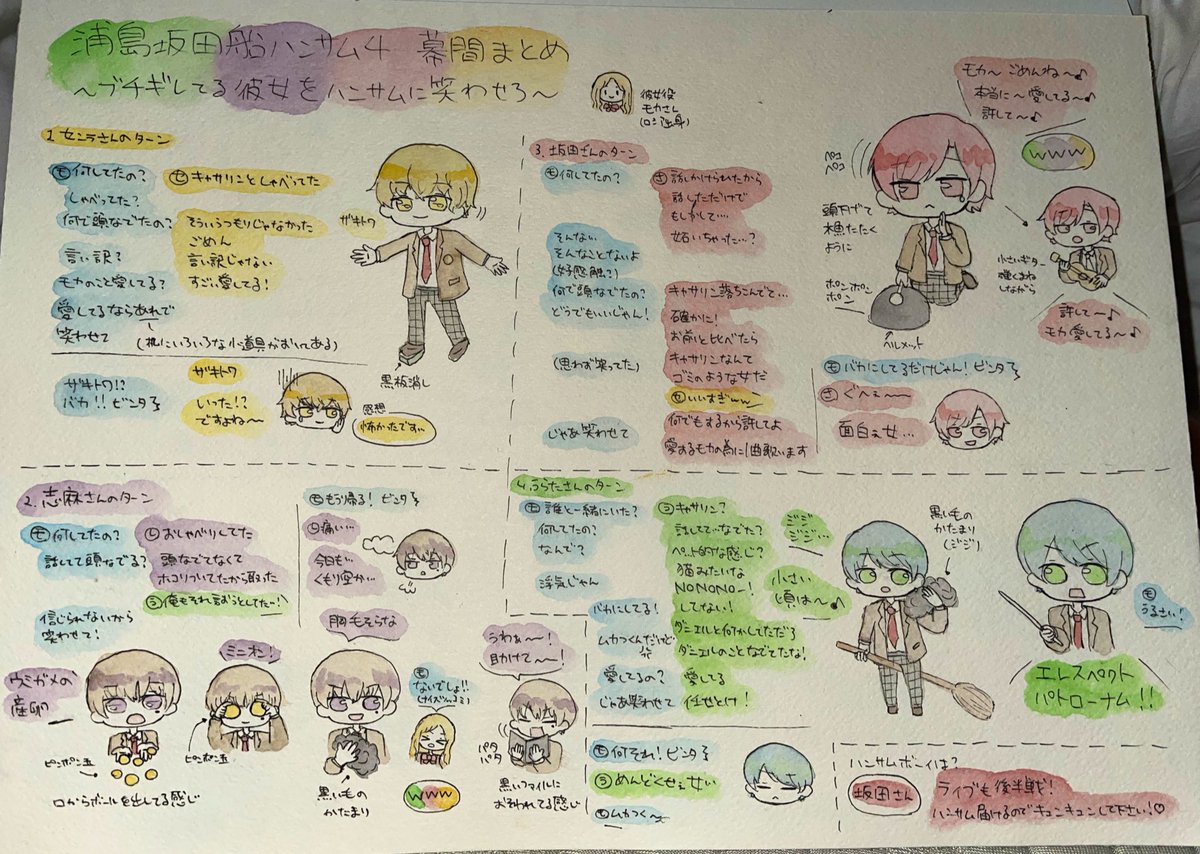 浦島坂田船ハンサム4 幕間まとめ
～ブチギレてる彼女をハンサムに笑わせろ～
彼女役
モカさん
(ロシア出身)
1.センラさんのターン
モ何してたの?
しゃべってた?
何で頭なでたの?
言い訳?
モカのこと愛してる?
愛してるならあれで
笑わせて
(机にいろいろな小道具がおいてある)
セキャサリンとしゃべってた
そういうつもりじゃなかった
ごめん
言い訳じゃない
すごい愛してる!
ザキトワ
黒板消し
ザキトワ!?
バカ!!ビンタ
ザキトワ
いった!?
ですよね～
感想
怖かったです…
2.志麻さんのターン
モ何してたの?
話して頭なでる?
信じられないから
笑わせて!
しおしゃべりしてた
頭なでてなくて
ホコリついてたから取った
う俺もそれ言おうとしてた～!
ウミガメの
産卵
ピンポン玉
口からボールを出してる感じ
ミニオン!
ピンポン玉
モもう帰る!ビンタ
し痛い…
今日も…
くもり空か…
胸毛そらな
黒い毛の
かたまり
モ
ないでしょ!!
www
うわぁ～～!
助けて～～!
パタ
パタ
黒いファイルに
おそわれてる感じ
3.坂田さんのターン
モ何してたの?
そんない
そんなことないよ
何で頭なでたの?
どうでもいいじゃん!
(思わず笑ってた)
じゃあ笑わせて
さ話しかけられたから
話しただけで
もしかして…
妬いちゃった…?
キャサリン落ちこんでて…
確かに!
お前と比べたら
キャサリンなんて
ゴミのような女だ
セいいすぎwww
何でもするから許してよ
愛するモカの為に1曲歌います
モカ～ごめんね～♪
本当に～愛してる～♪
許して～♪
www
ペコ
ペコ
頭下げて
木魚たたく
ように
ポンポンポン
ポン
ヘルメット
小さいギター
弾くまね
しながら
許して～♪
モカ愛してる～♪
モバカにしてるだけじゃん!ビンタ
さぐへぇ～～
面白ぇ女…
4.うらたさんのターン
モ誰と一緒にいた?
何してたの?
なんで?
浮気じゃん
バカにしてる!
ムカつくんだけど
愛してるの?
じゃあ笑わせて
うキャサリン?
話しててなでた?
ペット的な感じ?
猫みたいな
NONONO～!
してない!
ダニエルと何かしてただろ
ダニエルのことなでてたな!
愛してる
任せとけ!
ジジ
ジジ…
小さい
頃は～♪
黒い毛の
かたまり
(ジジ)
モ
うるさい!
エレスペクト
パトローナム!!
モ何それ!ビンタ
うめんどくせぇ女ぃ
モムカつく～
ハンサムボーイは?
坂田さん
ライブも後半戦!
ハンサム届けるのでキュンキュンして下さい!♡